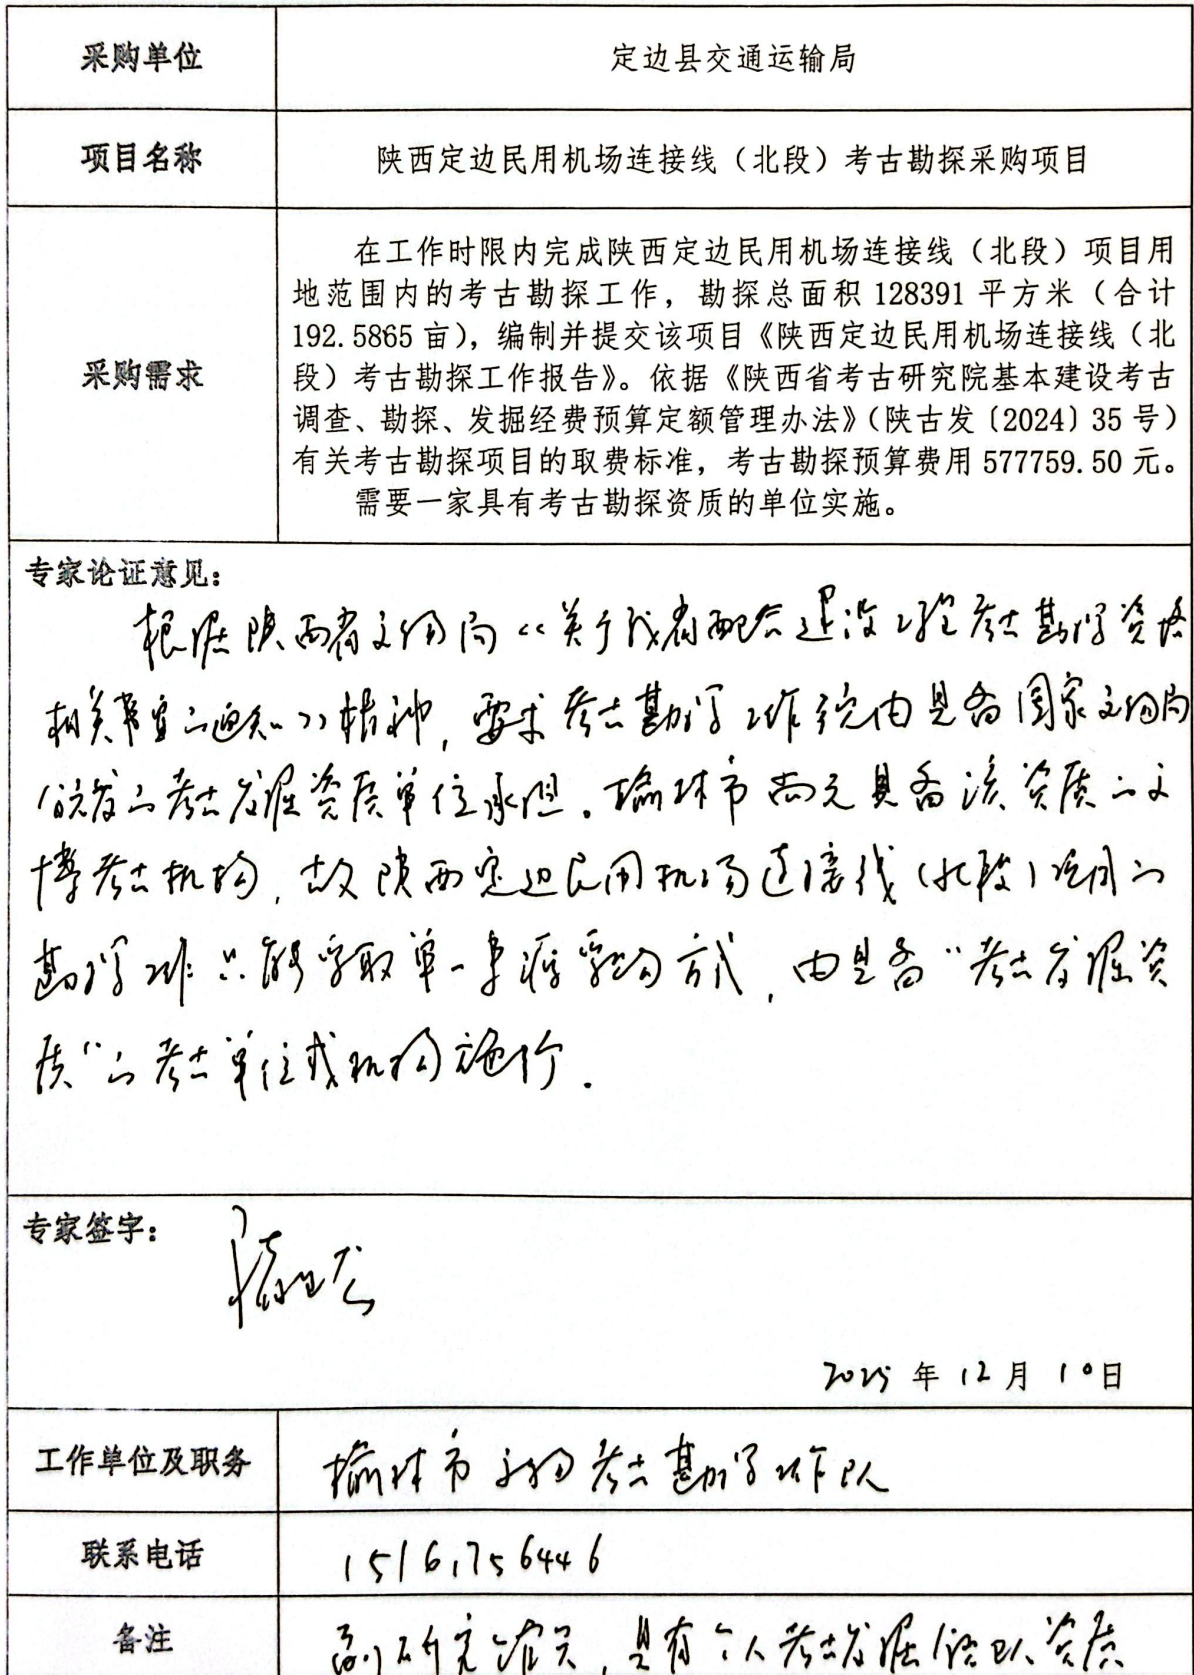 采购单位
定边县交通运输局
项目名称
陕西定边民用机场连接线（北段）考古勘探采购项目
采购需求
在工作时限内完成陕西定边民用机场连接线（北段）项目用
地范围内的考古勘探工作，勘探总面积 128391 平方米（合计
192.5865 亩），编制并提交该项目《陕西定边民用机场连接线（北
段）考古勘探工作报告》。依据《陕西省考古研究院基本建设考古
调查、勘探、发掘经费预算定额管理办法》（陕古发〔2024〕35 号）
有关考古勘探项目的取费标准，考古勘探预算费用 577759.50 元。
需要一家具有考古勘探资质的单位实施。
专家论证意见：
根据陕西省文物局《关于我省配合建设工程考古勘探资格
相关事宜的通知》精神，要求考古勘探工作须由具备国家文物局
颁发的考古发掘资质单位承担。榆林市尚无具备该资质的文
博考古机构，故陕西定边民用机场连接线（北段）项目的
勘探工作只能采取单一来源采购方式，由具备“考古发掘资
质”的考古单位或机构施行。
专家签字：
2025 年 12 月 10 日
工作单位及职务
榆林市文物考古勘探工作队
联系电话
15161756446
备注
副研究馆员，具有个人考古发掘领队资质